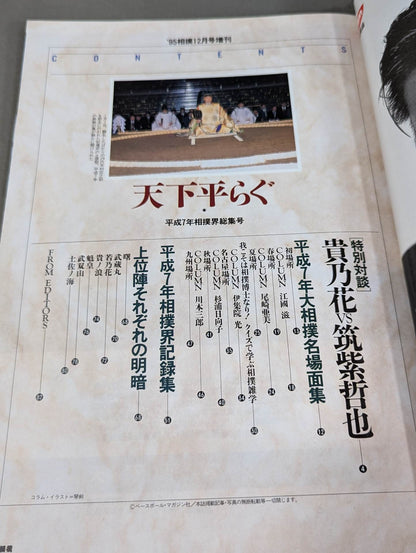 '95相撲12月号増刊
CONTENTS
天下平らぐ
平成7年相撲界総集号
特別対談
貴乃花VS筑紫哲也 4
平成7年大相撲名場面集 12
初場所 13
COLUMN 江國 滋 18
春場所 19
COLUMN 尾崎亜美 24
夏場所 25
我こそは相撲博士なり!クイズで学ぶ相撲雑学 50
COLUMN 伊集院 光 34
名古屋場所 35
COLUMN 杉浦日向子 40
秋場所 41
COLUMN 川本三郎 46
九州場所 47
平成7年相撲界記録集 51
上位陣それぞれの明暗 68
曙 68
武蔵丸
若乃花
貴ノ浪
魁皇
武双山
土佐ノ海
FROM EDITORS 82
コラム・イラスト=琴剣
©ベースボール・マガジン社/本誌掲載記事・写真の無断転載等一切禁じます。